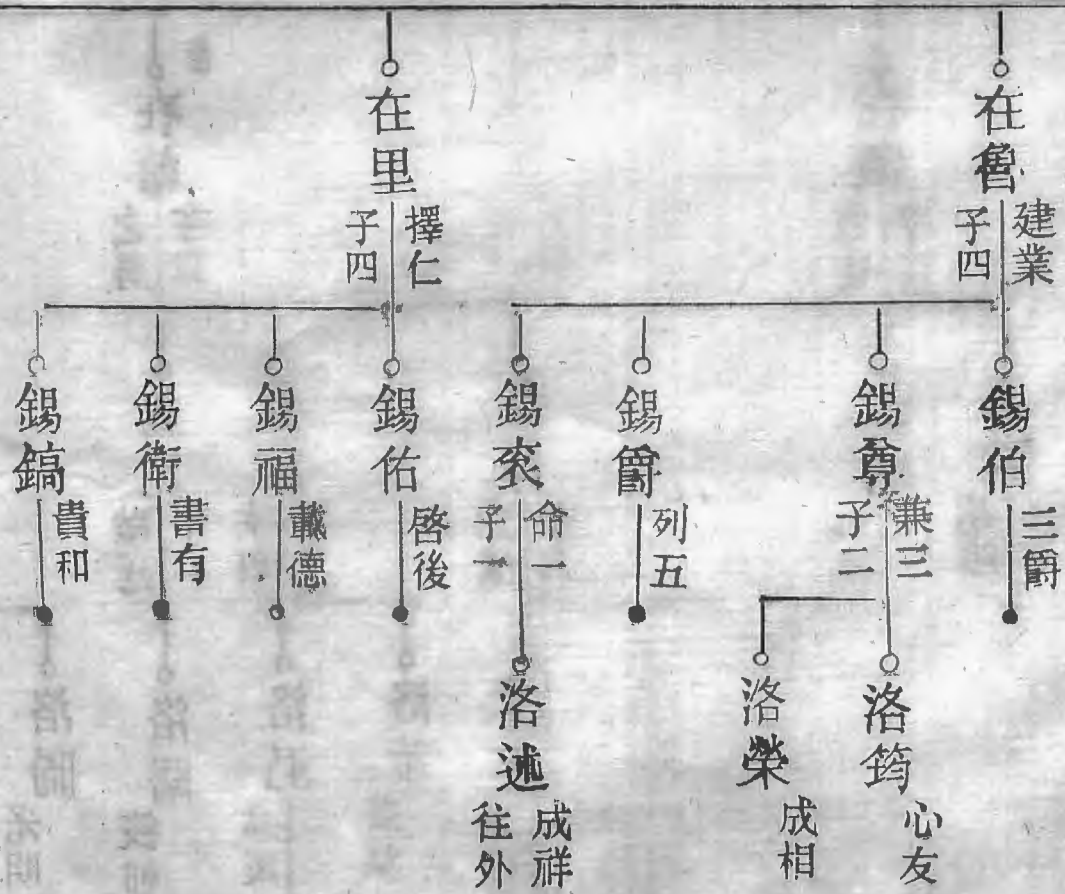 在魯
建業
子四
錫伯
三爵
錫尊
兼三
子二
洛筠
心友
洛榮
成相
錫爵
列五
錫袞
命一
子一
洛述
成祥
往外
在里
擇仁
子四
錫佑
啓後
錫福
載德
錫衛
書有
錫鎬
貴和